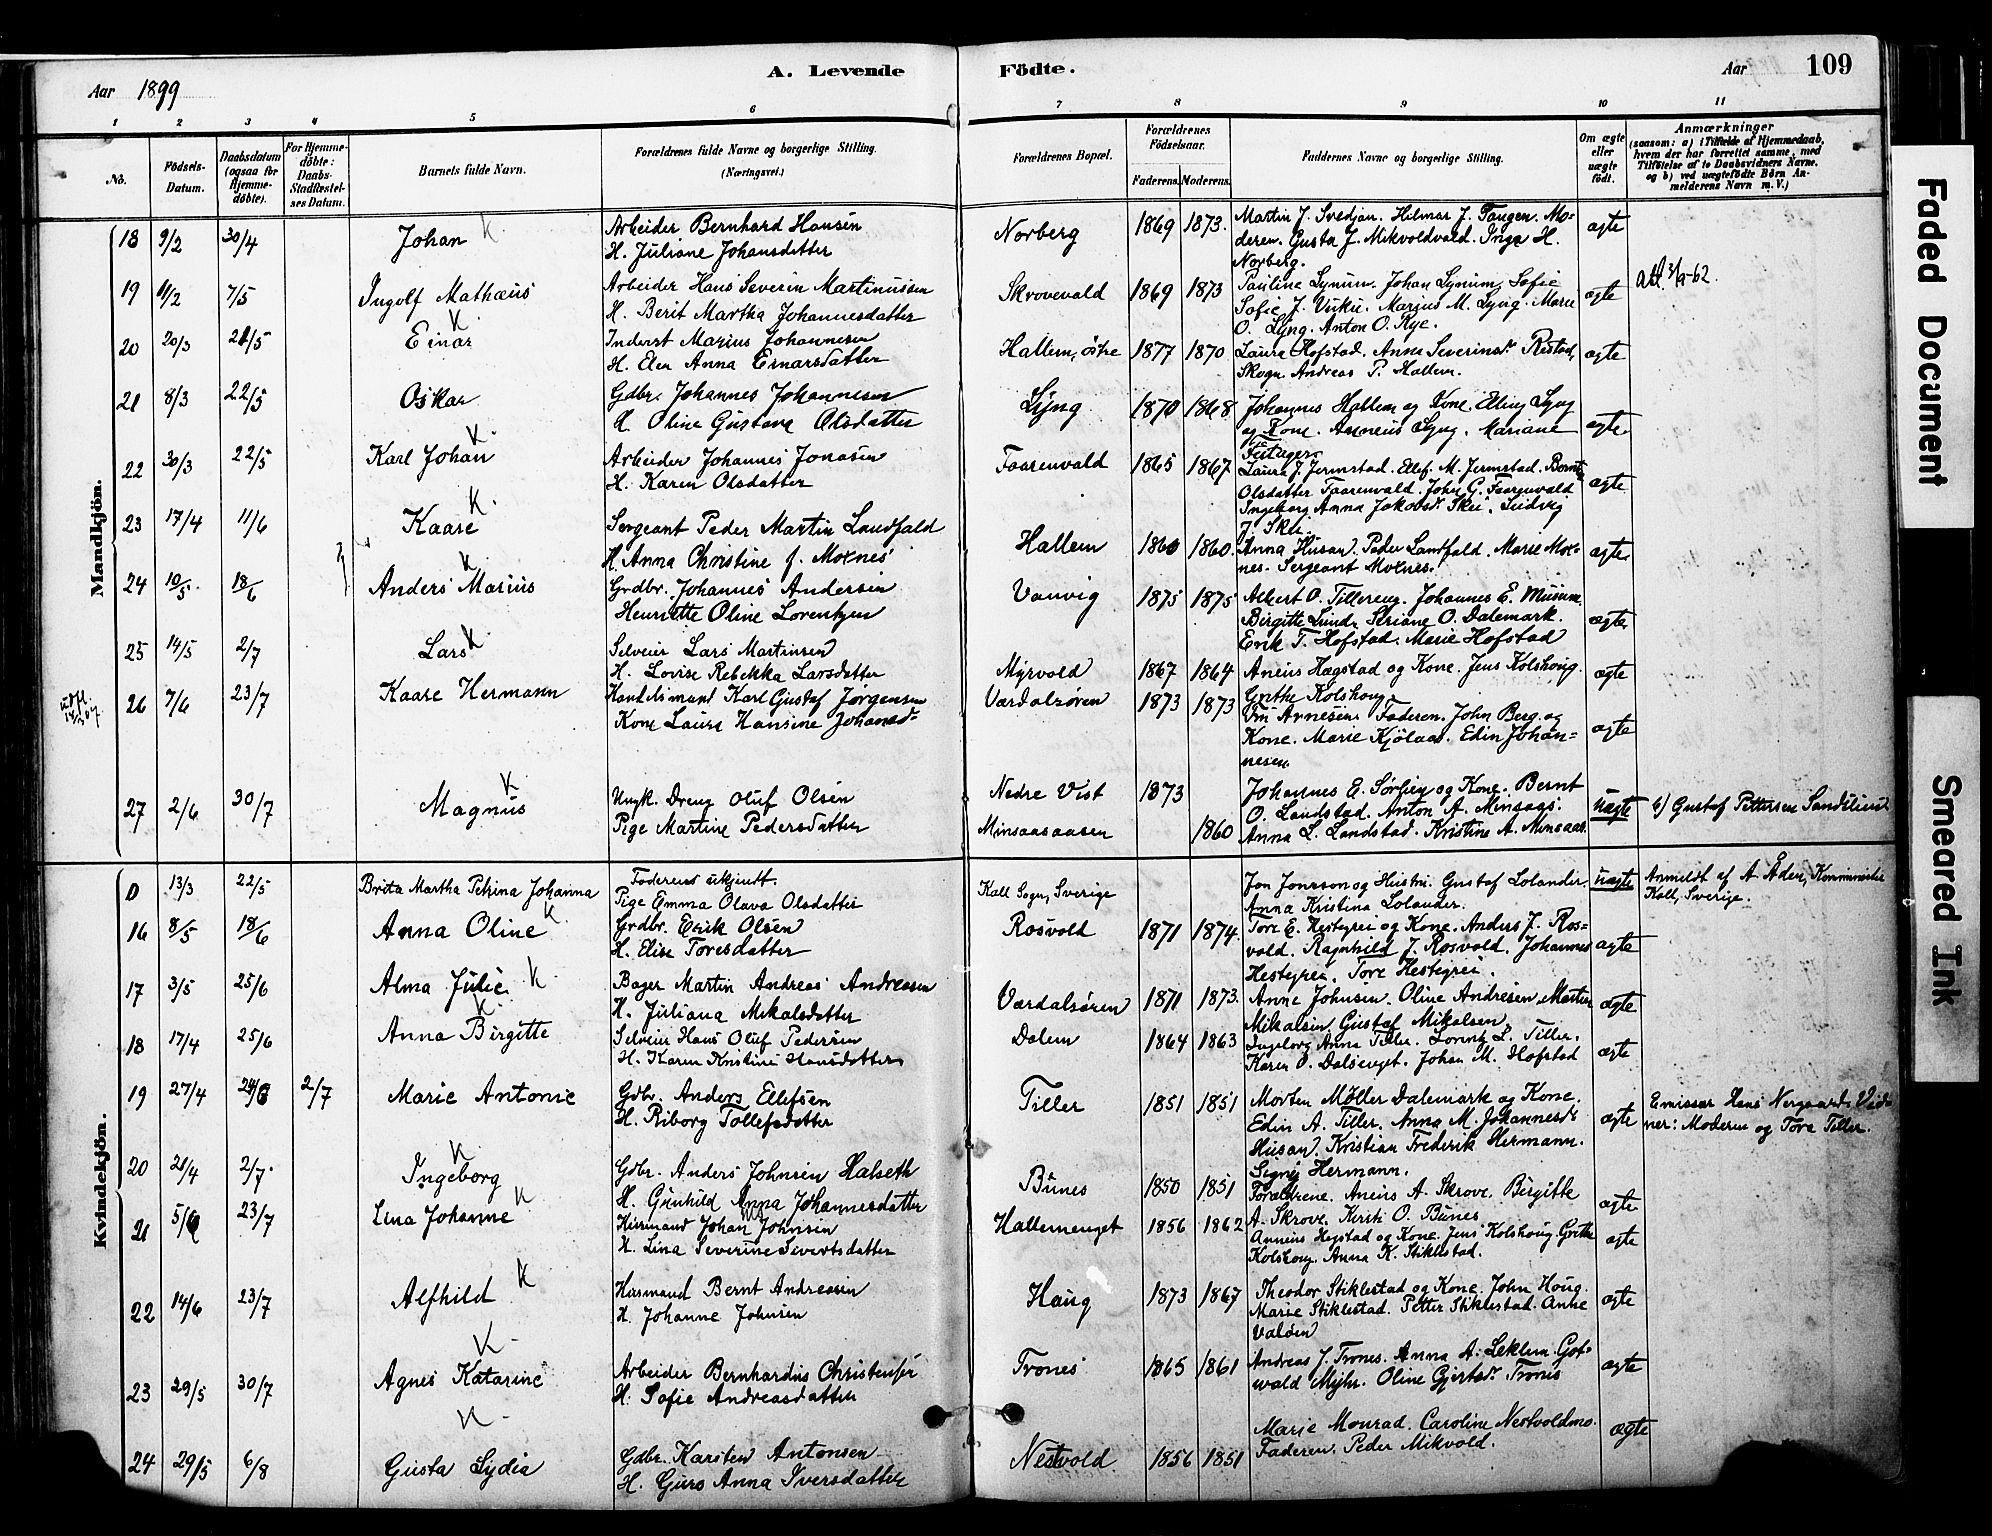 Aar 1899
A. Levende Födte.
Aar 109
1 2 3 4 5 6 7 8 9 10 11
No.
Födsels-Datum.
Daabsdatum (ogsaa for Hjemme-döbte).
For Hjemme-döbte: Daabs-Stadfæstel-ses Datum.
Barnets fulde Navn.
Forældrenes fulde Navne og borgerlige Stilling. (Næringsvei.)
Forældrenes Bopæl.
Forældrenes Födselsaar.
Faderens. Moderens.
Faddernes Navne og borgerlige Stilling.
Om ægte eller uægte födt.
Anmærkninger
(saasom: a) i Tilfælde af Hjemmedaab, hvem der har forrettet samme, med Tilföielse af to Daabsvidners Navne. og b) ved uægtefödte Börn An-melderens Navn m. V.)
Mandkjön.
18 9/2 30/4 Johan K
Arbeider Bernhard Hansen
H. Juliane Johansdatter
Norberg 1869 1873.
Martin J. Svedjan. Hilmar J. Tangen. Mo-
deren. Gusta J. Mikvoldvald. Inga H.
Norberg.
ægte
19 11/2 7/5 Ingolf Mathæus
Arbeider Hans Severin Martinussen
H. Berit Martha Johannesdatter
Skrovevald 1869 1873
Pauline Lynum. Johan Lynum, Sofie
Sofie J. Vuku. Marius M. Lyng. Marie
O. Lyng. Anton O. Rye.
ægte
20 20/3 21/5 Einar K
Inderst Marius Johannesen
H. Elen Anna Einarsdatter
Hallem, östre 1877 1870
Laura Hofstad. Anna Severinsdr Ristad,
Skogn. Andreas P. Hallem.
ægte
21 8/3 22/5 Oskar
Gdbr. Johannes Johannesen
H. Oline Gustava Olsdatter
Lyng 1870 1868
Johannes Hallem og Kone. Elling Lyng
og Kone. Anneus Lyng. Mariane
ægte
22 30/3 22/5 Karl Johan K.
Arbeider Johannes Jonasen
H. Karen Olsdatter
Faarenvald 1865 1867
Laura J. Jermstad. Ellef. M. Jermstad.
Olsdatter Faarenvald. John G. Faarenvald
Ingeborg Anna Jakobsdr Skei. Ludvig
J. Skei.
ægte
23 17/4 11/6 Kaare K.
Sergeant Peder Martin Landfald
H. Anna Christine f. Moxnes
Hallem 1860 1860.
Anna Husan. Peder Landfald. Marie Mox-
nes. Sergeant Moxnes.
ægte
24 10/5 18/6 Anders Marius K
Grdbr. Johannes Andersen
Henriette Oline Lorentzen
Vanvig 1875 1875
Albert O. Tillereng. Johannes E. Musum
Birgitte Lund. Seriane O. Dalemark.
Erik T. Hofstad. Marie Hofstad
ægte
25 14/5 2/7 Lars K.
Selveier Lars Martinsen
H. Lovise Rebekka Larsdatter
Myrvold 1867 1864
Aneus Hagstad og Kone. Jens Kolshoug.
Grethe Kolshoug.
ægte
26 7/6 23/7 Kaare Hermann
Handelsmand Karl Gustaf Jørgensen
Kone Laura Hansine Johansd-
Værdalsören 1873 1873
Arnesen. Faderen. John Berg og
Kone. Marie Kjölaas. Edin Johan=
nesen.
ægte
27 2/6 30/7 Magnus K
Ungk. Dreng Oluf Olsen
Pige Martine Pedersdatter
Nedre Vist 1873
Minsaasaasen 1860
Johannes E. Sørbey og Kone. Bernt
O. Landstad. Anton A. Minsaas.
Anna L. Landstad. Kristine A. Minsaas.
uægte
b) Gustaf Pettersen
Kvindekjön.
D 13/3 22/5 Brita Martha Petrina Johanna
Faderens ukjendt.
Pige Emma Olava Olsdatter
Kall Sogn, Sverige
Jon Jonsson og Hustru. Gustaf Lolander.
Anna Kristina Lolander.
uægte
Anmeldt af A. Åden, Komminister
Kall, Sverige.
16 8/5 18/6 Anna Oline K
Grdbr. Erik Olsen
H. Elise Toresdatter
Rosvold 1871 1874
Tore E. Hestegrei og Kone. Anders J. Ros=
vold. Ragnhild J. Rosvold. Johannes
Hestegrei. Tore Hestegrei.
ægte
17 3/5 25/6 Alma Julie K
Bager Martin Andreas Andreasen
H. Juliana Mikalsdatter
Værdalsören 1871 1873.
Anna Johnsen. Oline Andresen. Martin
Mikalsen. Gustaf Mikalsen.
ægte
18 17/4 25/6 Anna Birgitte K
Selveier Hans Oluf Pedersen
H. Karen Kristine Hansdatter
Dalem 1864 1863
Ingeborg Anna Tiller. Lornts L. Tiller.
Karen O. Dalsenget. Johan M. Hofstad
ægte
19 27/4 2/7 Marie Antonie
Gdbr. Anders Ellefsen
H. Riborg Tollefsdatter
Tiller 1851 1851
Morten Møller Dalemark og Kone.
Edin A. Tiller. Anna M. Johannesdr
Husan. Kristian Frederik Hermann.
Signy Hermann.
ægte
Emissær Hans Nergaard. Vid=
ner: Moderen og Tora Tiller.
20 21/4 2/7 Ingeborg K
Gdbr. Anders Johnsen Halseth
H. Gunhild Anna Johannesdatter
Bunes 1850 1851
Forældrene. Aneus A. Skrove. Birgitte
A. Skrove. Kirsti O. Bunes
ægte
21 5/6 23/7 Lina Johanne K
Husmand Johan Johnsen
H. Lina Severine Sivertsdatter
Hallemenget 1856 1862
Anneus Hegstad og Kone. Jens Kolshoug. Grethe
Kolshoug. Anna K. Stiklestad.
ægte
22 14/6 23/7 Alfhild K
Husmand Bernt Andreasen
H. Johanne Johnsen
Haug 1873 1867
Theodor Stiklestad og Kone. John Houg.
Marie Stiklestad. Petter Stiklestad. Anne
Valöen
ægte
23 29/5 30/7 Agnes Katarine K
Arbeider Bernhardus Christensen
H. Sofie Andreasdatter
Trones 1865 1861
Andreas J. Trones. Anna A. Leklem. Got-
wald Myhr. Oline Gjertsdr Trones
ægte
24 29/5 6/8 Gusta Lydia K
Gdbr. Karsten Antonsen
H. Guro Anna Iversdatter
Nestvold 1856 1851
Marie Monrad. Caroline Nestvoldmo.
Faderen. Peder Mikvold.
ægte
Faded Document
Smeared Ink